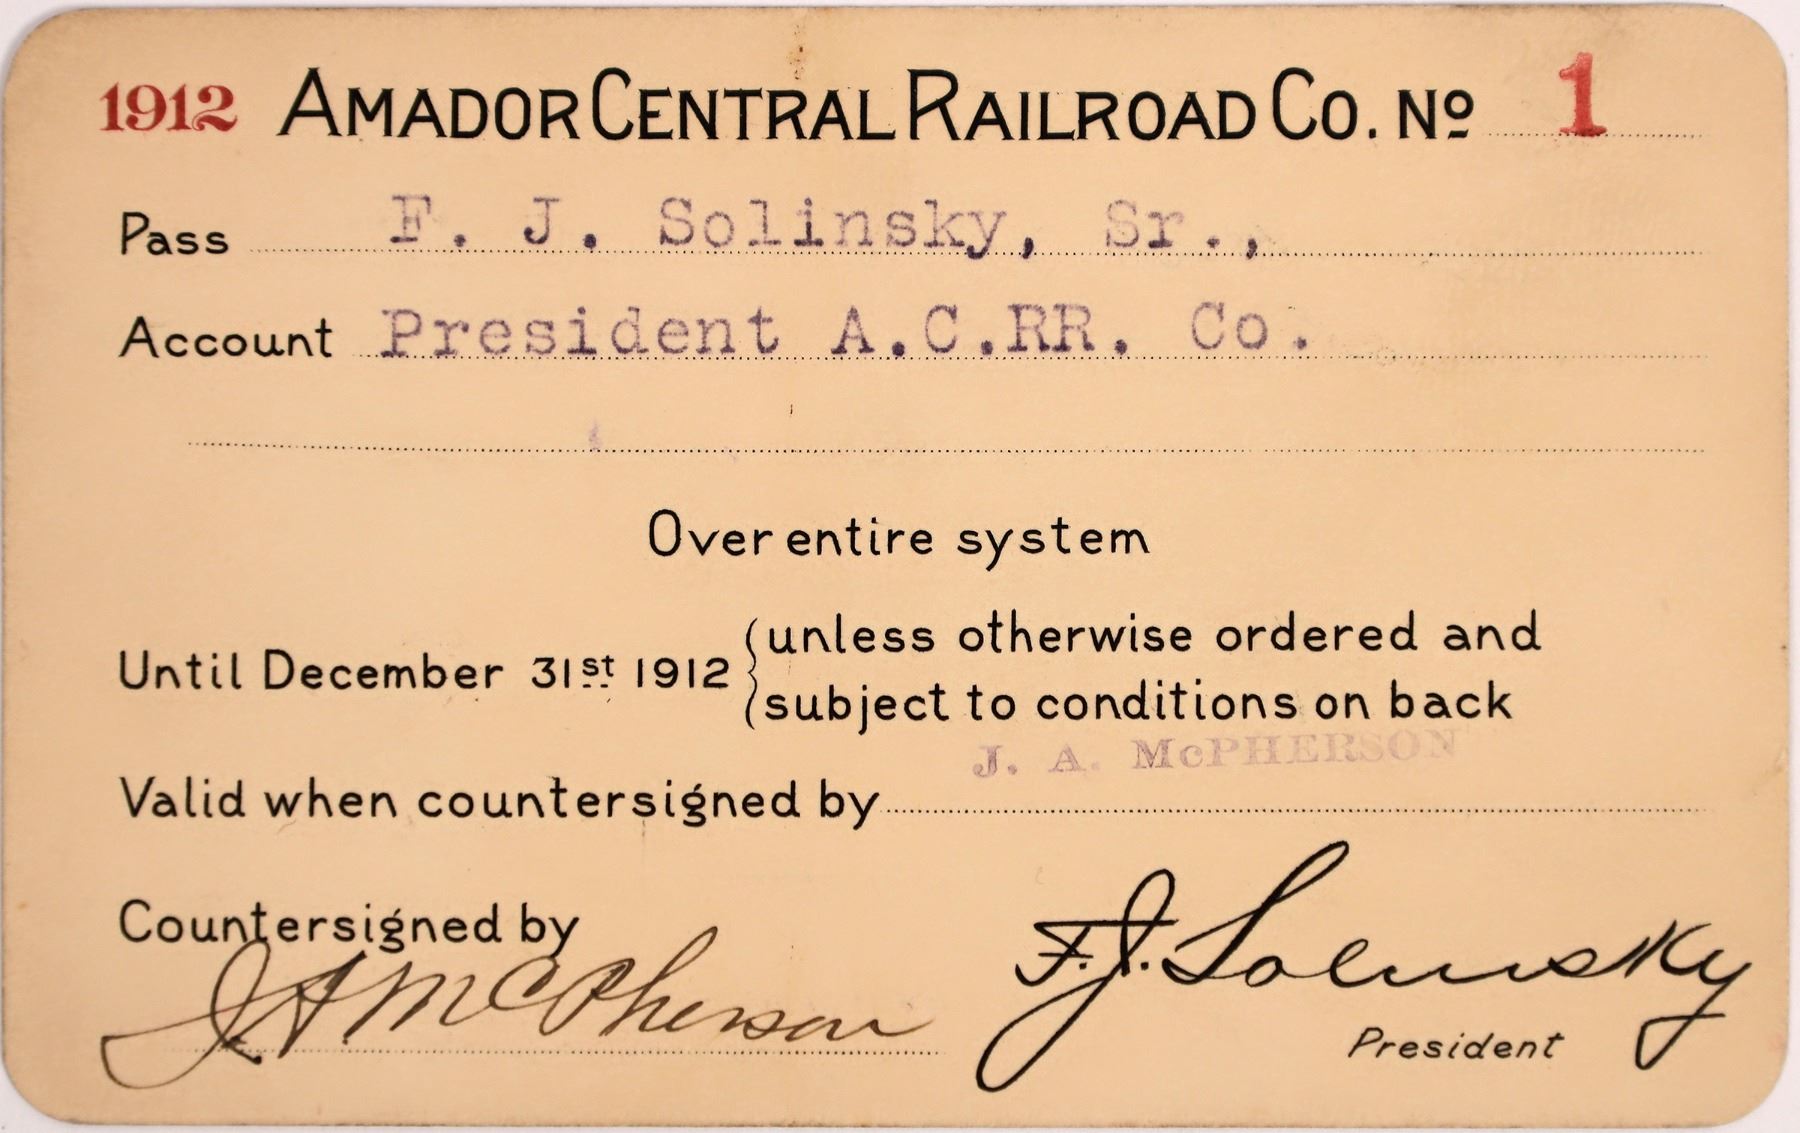 1912 AMADOR CENTRAL RAILROAD CO. Nº 1
Pass F. J. Solinsky, Sr.,
Account President A.C.RR. Co.
Over entire system
Until December 31st 1912 { unless otherwise ordered and
subject to conditions on back
J. A. McPHERSON
Valid when countersigned by
Countersigned by
J A McPherson
F. J. Solinsky
President